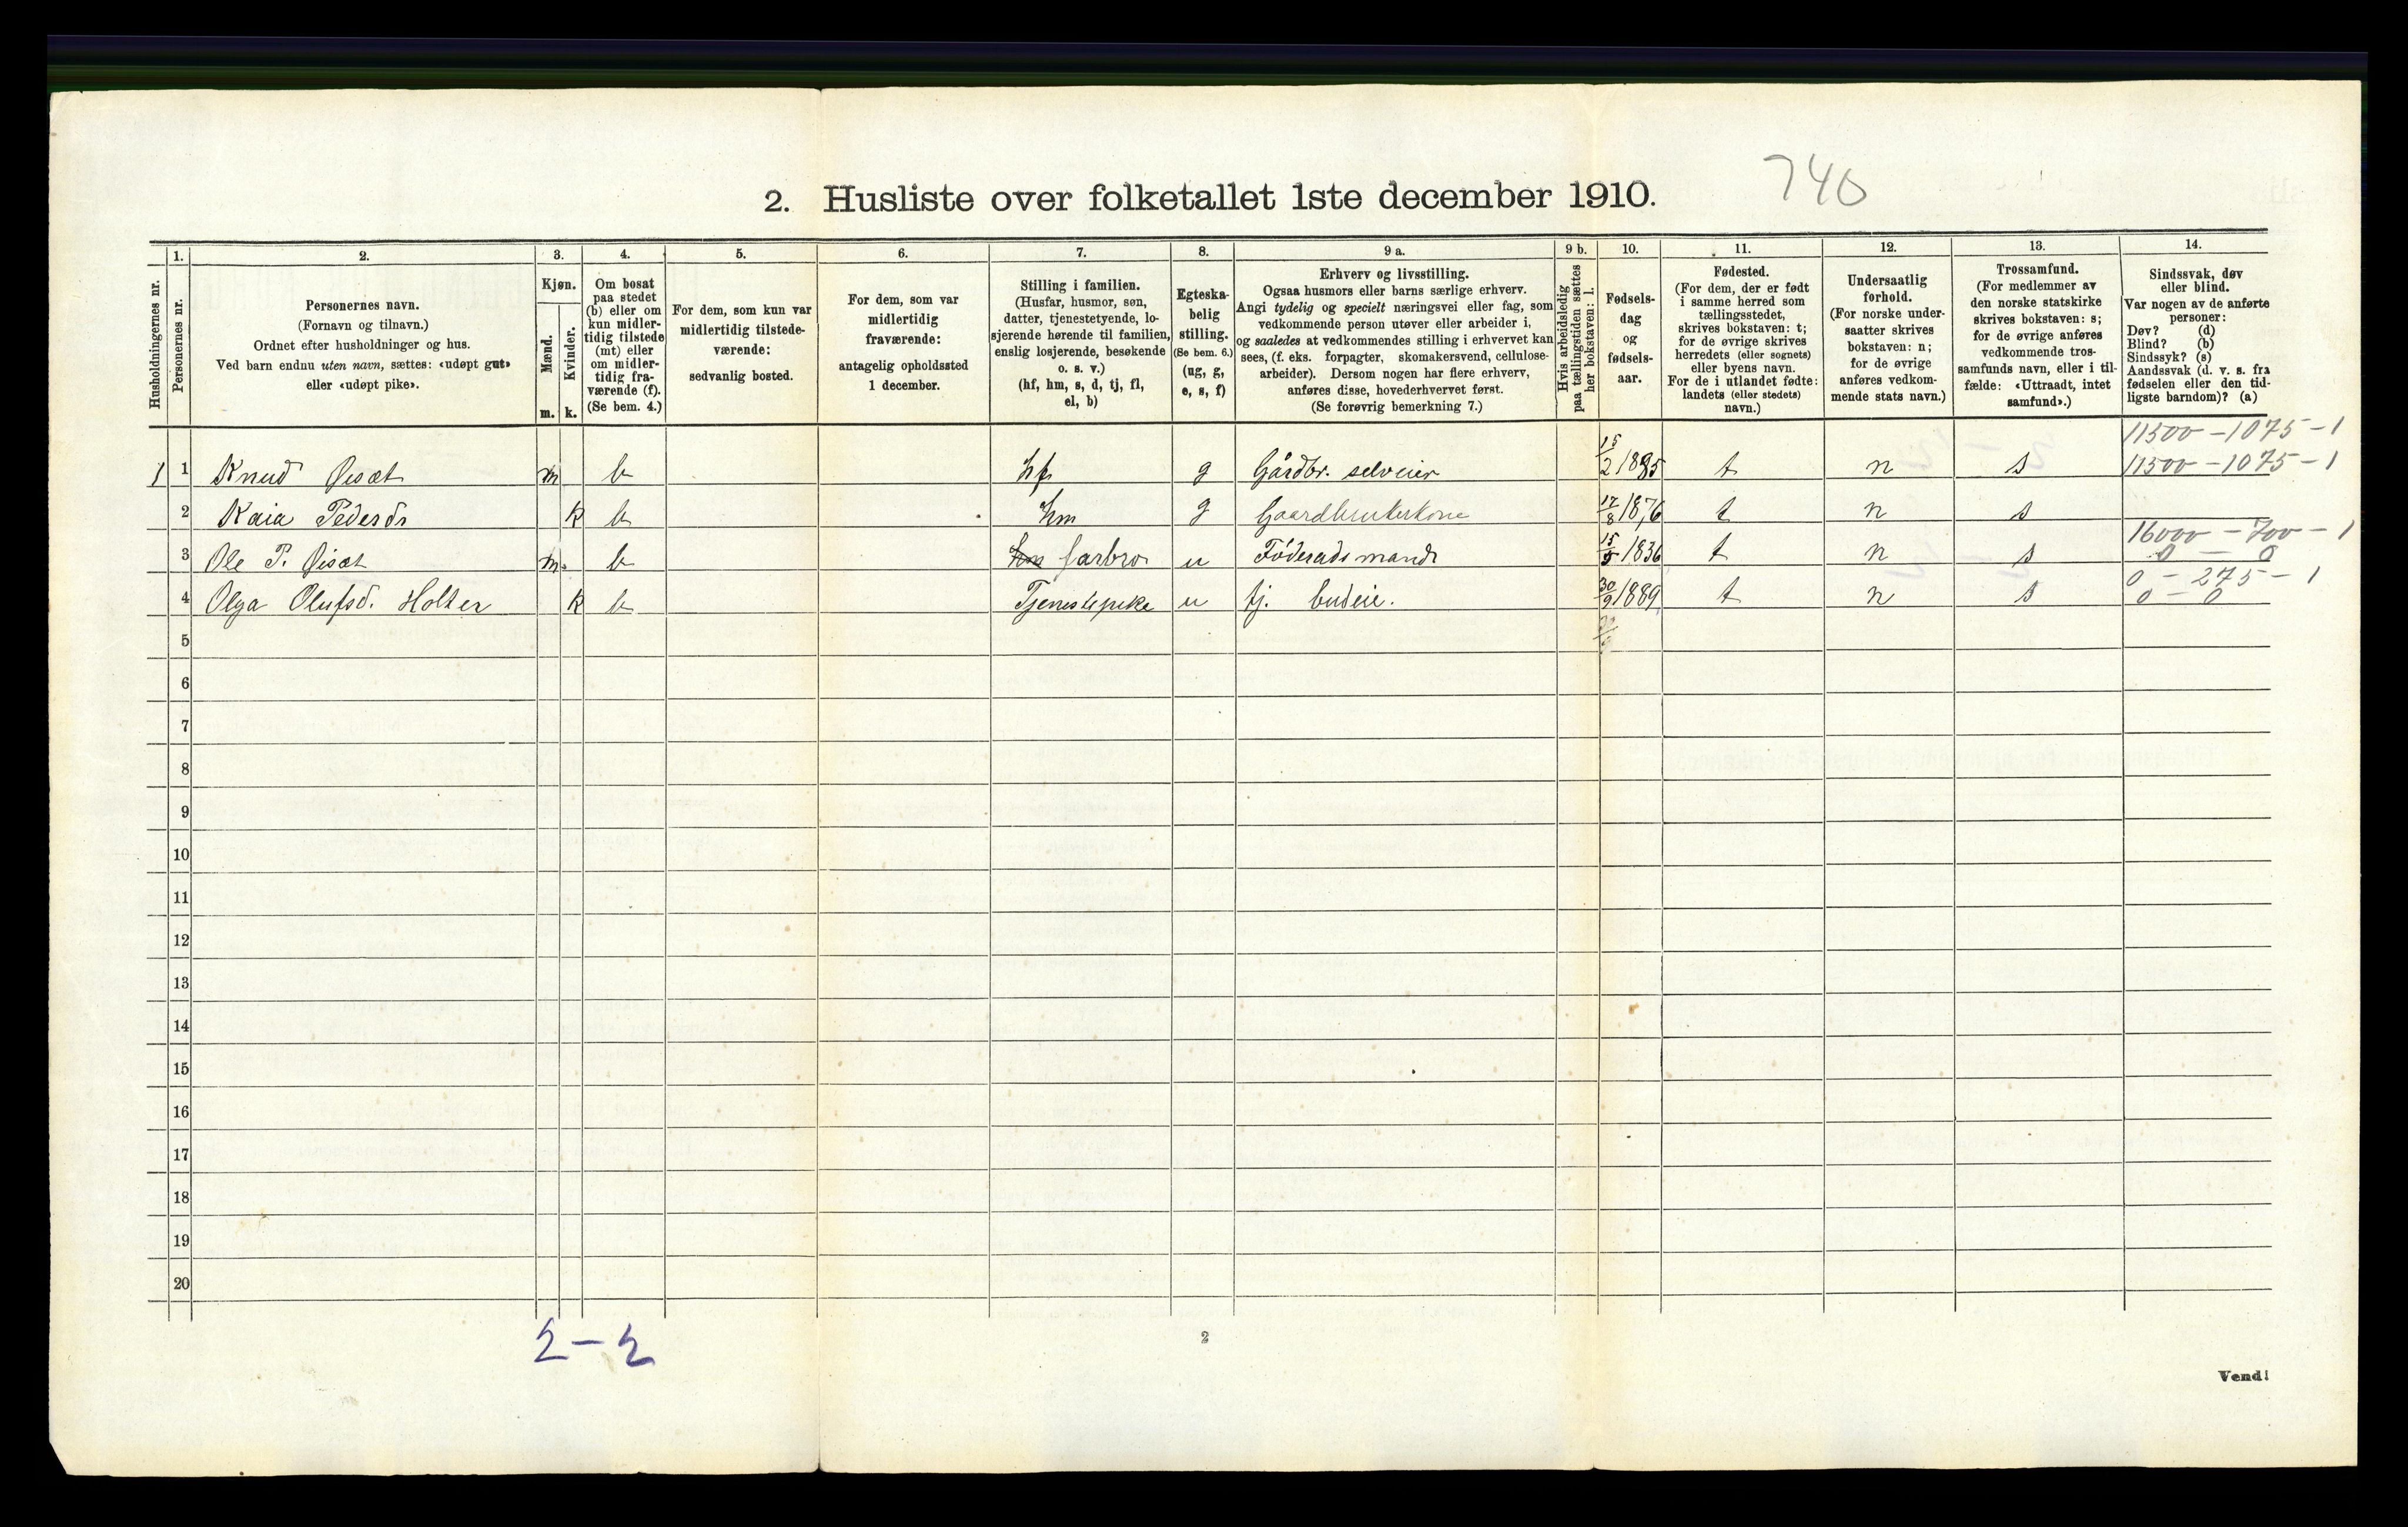 740
2. Husliste over folketallet 1ste december 1910.
Husholdningernes nr.
1. Personernes nr.
2. Personernes navn.
(Fornavn og tilnavn.)
Ordnet efter husholdninger og hus.
Ved barn endnu uten navn, sættes: «udøpt gut»
eller «udøpt pike».
3. Kjøn.
Mænd. m.
Kvinder. k.
4. Om bosat
paa stedet
(b) eller om
kun midler-
tidig tilstede
(mt) eller
om midler-
tidig fra-
værende (f).
(Se bem. 4.)
5. For dem, som kun var
midlertidig tilstede-
værende:
sedvanlig bosted.
6. For dem, som var
midlertidig
fraværende:
antagelig opholdssted
1 december.
7. Stilling i familien.
(Husfar, husmor, søn,
datter, tjenestetyende, lo-
sjerende hørende til familien,
enslig losjerende, besøkende
o. s. v.)
(hf, hm, s, d, tj, fl,
el, b)
8. Egteska-
belig
stilling.
(Se bem. 6.)
(ug, g,
e, s, f)
9 a. Erhverv og livsstilling.
Ogsaa husmors eller barns særlige erhverv.
Angi tydelig og specielt næringsvei eller fag, som
vedkommende person utøver eller arbeider i,
og saaledes at vedkommendes stilling i erhvervet kan
sees, (f. eks. forpagter, skomakersvend, cellulose-
arbeider). Dersom nogen har flere erhverv,
anføres disse, hovederhvervet først.
(Se forøvrig bemerkning 7.)
9 b. Hvis arbeidsledig
paa tællingstiden sættes
her bokstaven: l.
10. Fødsels-
dag
og
fødsels-
aar.
11. Fødested.
(For dem, der er født
i samme herred som
tællingsstedet,
skrives bokstaven: t;
for de øvrige skrives
herredets (eller sognets)
eller byens navn.
For de i utlandet fødte:
landets (eller stedets)
navn.)
12. Undersaatlig
forhold.
(For norske under-
saatter skrives
bokstaven: n;
for de øvrige
anføres vedkom-
mende stats navn.)
13. Trossamfund.
(For medlemmer av
den norske statskirke
skrives bokstaven: s;
for de øvrige anføres
vedkommende tros-
samfunds navn, eller i til-
fælde: «Uttraadt, intet
samfund».)
14. Sindssvak, døv
eller blind.
Var nogen av de anførte
personer:
Døv? (d)
Blind? (b)
Sindssyk? (s)
Aandssvak (d. v. s. fra
fødselen eller den tid-
ligste barndom)? (a)
11500 - 1075 - 1
1 1 Knud Øisæt m b hf g Gårdbr. selveier 15/2 1885 t n s 11500 - 1075 - 1
2 Kaia Pedersdr k b hm g Gaardbrukerkone 17/8 1876 t n s
16000 - 700 - 1
3 Ole P. Øisæt m. b hm farbror u Föderadsmand 15/5 1836 t n s 0 - 0
0 - 275 - 1
4 Olga Olufsd. Holter k b Tjenestepike u tj. budeie. 30/9 1889 t n s 0 - 0
5
6
7
8
9
10
11
12
13
14
15
16
17
18
19
20
2 - 2
2
Vend!